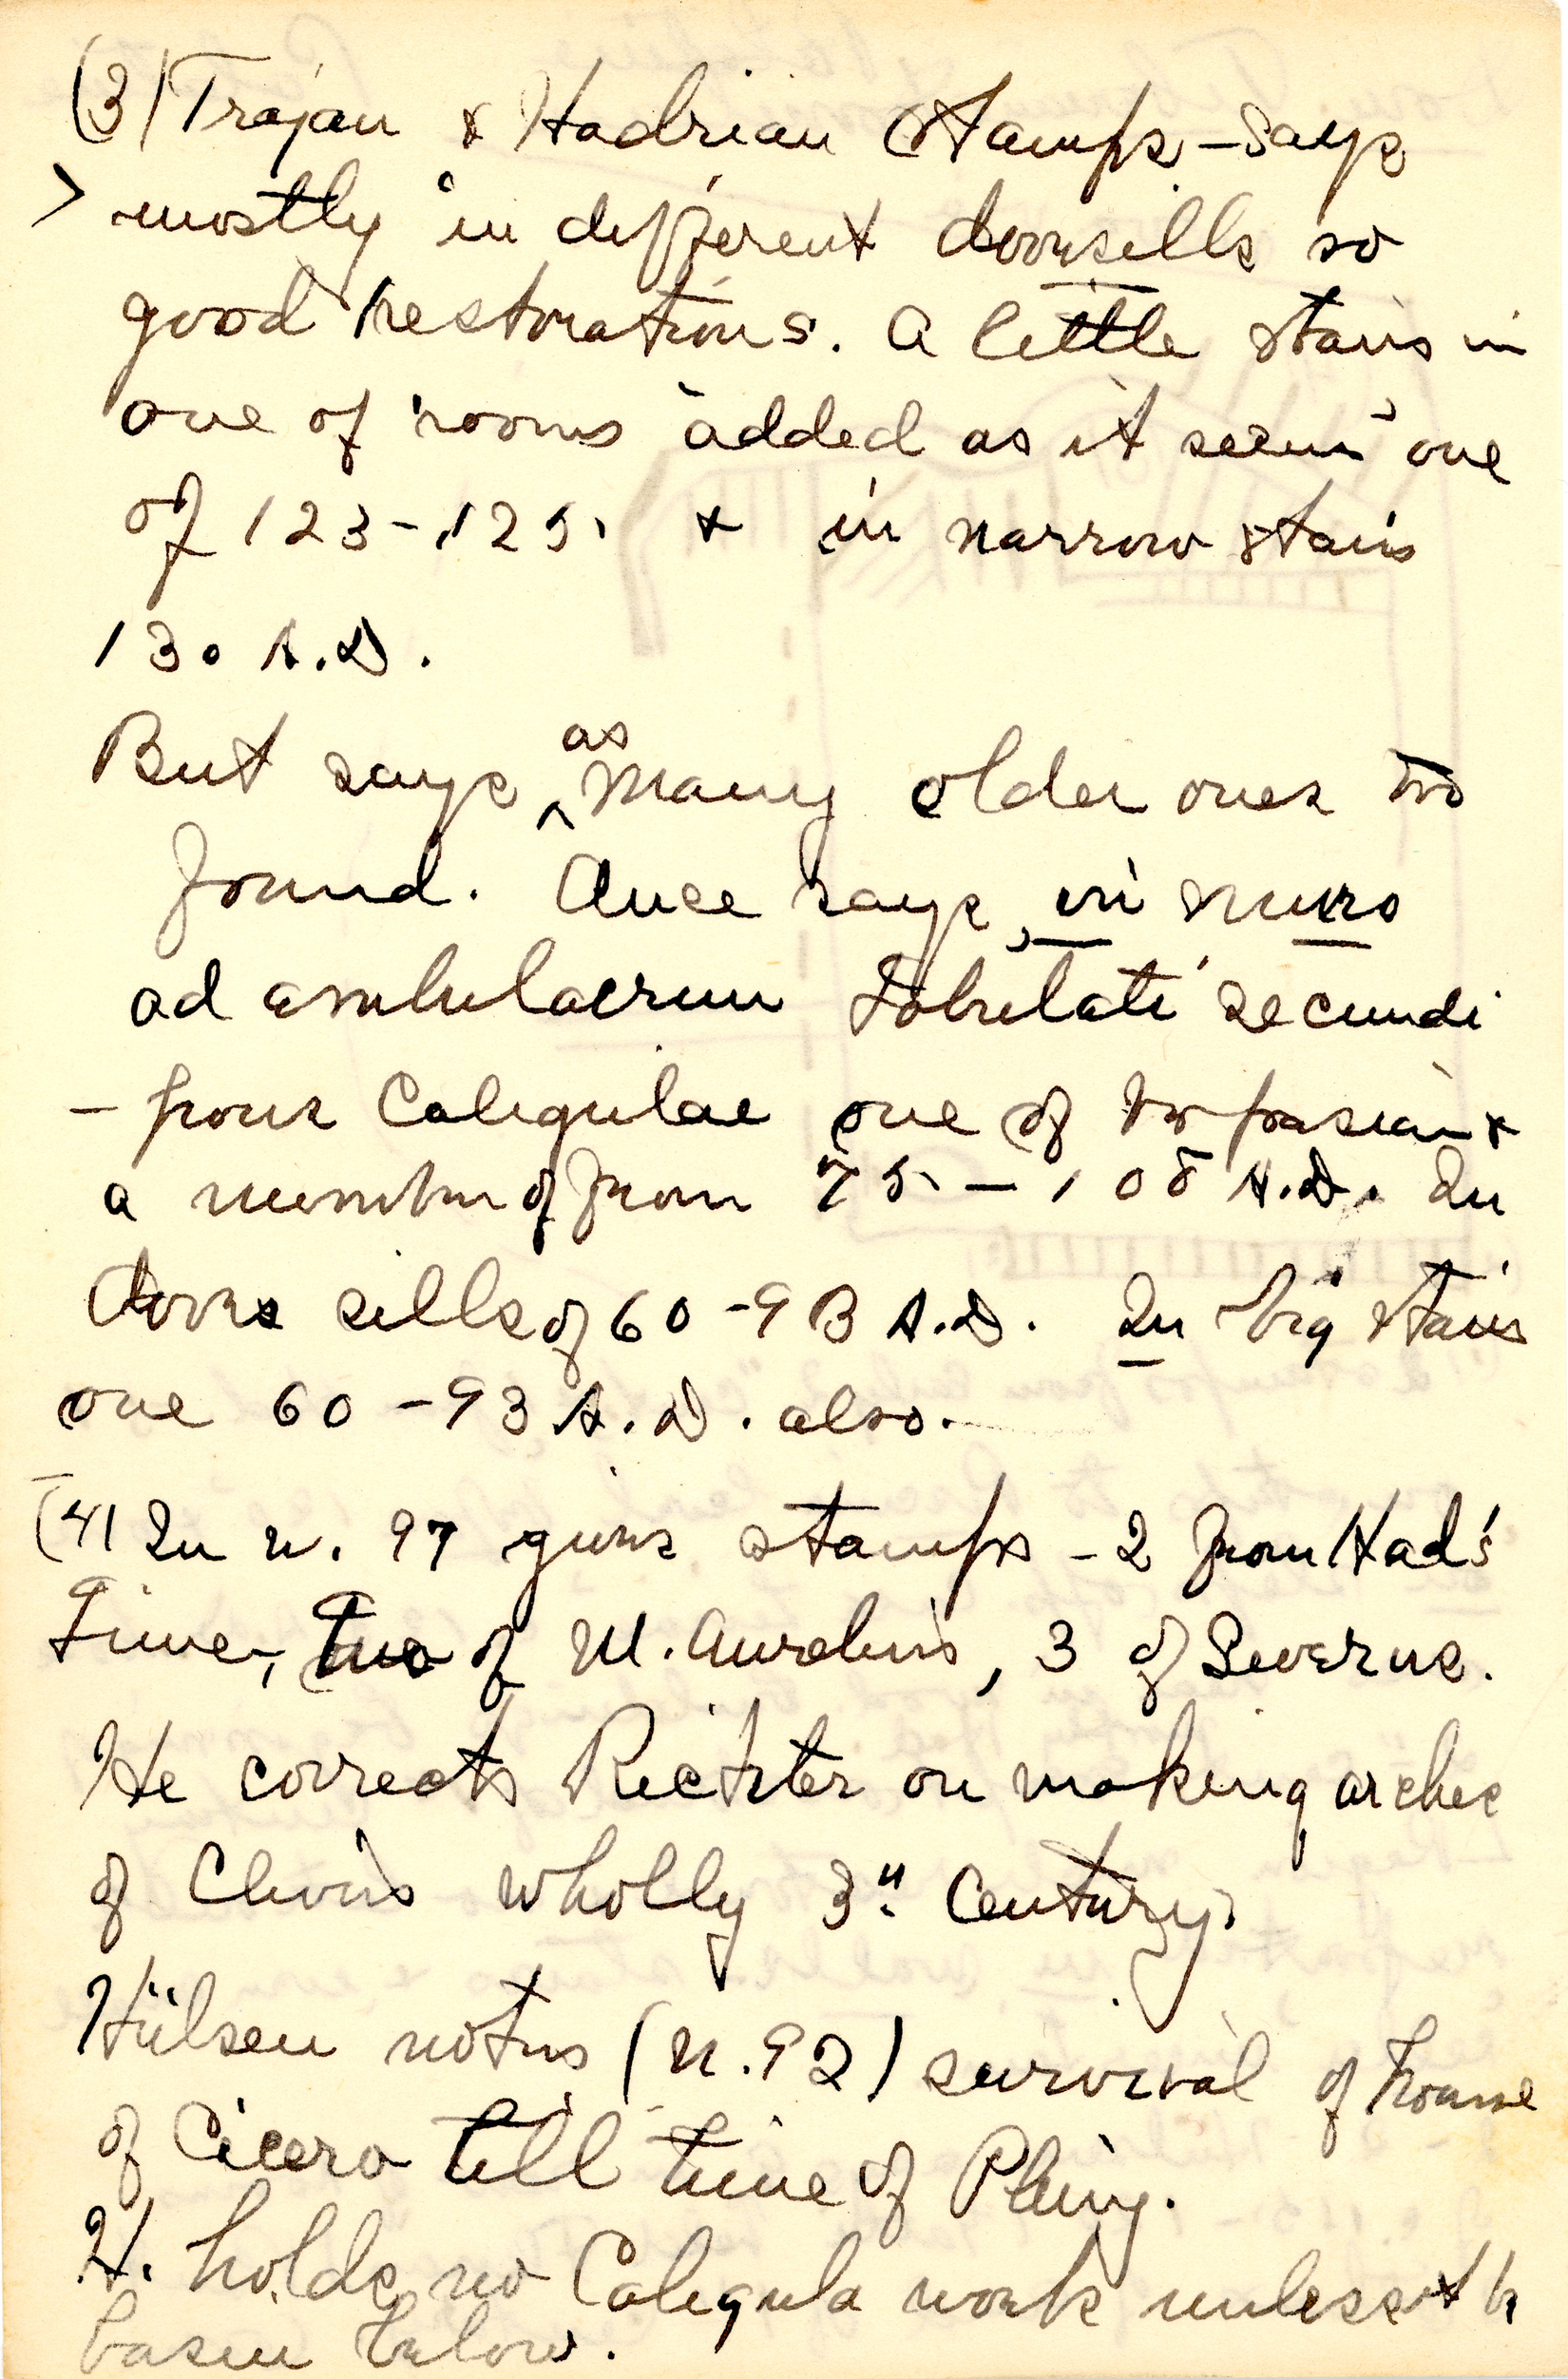 (3) Trajan & Hadrian Stamps – says
> mostly in different doorsills so
good restorations. A little stairs in
one of rooms added as it seems one
of 123–125. & in narrow stairs
130 A.D.
But says as many older ones too
found. Once says, in muro
ad ambulacrum tabulati secundi
– pons Caligulae one of Vespasian &
a number of from 75 – 108 A.D. In
doors sills of 60–93 A.D. In big stairs
one 60–93 A.D. also.
(4) In n. 97 gives stamps – 2 from Had's
time, two of M. Aurelius, 3 of Severus.
He corrects Richter on making arches
of Clivus wholly 3" Century.
Hülsen notes (n.92) survival of house
of Cicero till time of Pliny.
H. holds no Caligula work unless it be
basin below.